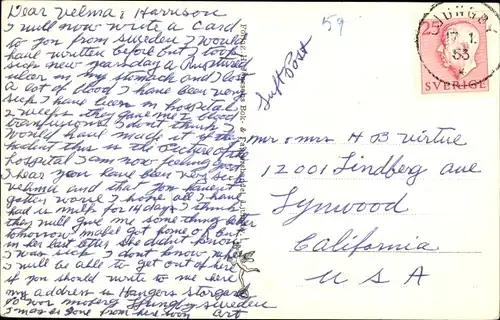 Dear Velma & Harrison
I will now write a Card
to you from Sweden I would
have written before but I took
sick new yearsday a Punctured
ulcer in my stomach and I lost
a lot of blood I have been very
sick I have been in hospital
2 weeks they gave me 2 blood
transfusions I don't think I
would have made it if they
hadent this is the Picture of the
hospital I am now feeling better
I hear you have been very sick
velma and that you havent
gotten worse I hope all I have
had is milk for 14 days I think
they will give me some thing better
tomorrow mabel got home of but
in her last letter she didnt know
I was sick I dont know when
I will be able to get out of here
if you should write to me here
my address is Hangers
Ljungby Sweden
from her soon Art
59
Luft Post
LJUNGBY
17. 1.
53
25
SVERIGE
mr & mrs H B Virtue
12001 Lindberg ave
Lynwood
California
U S A